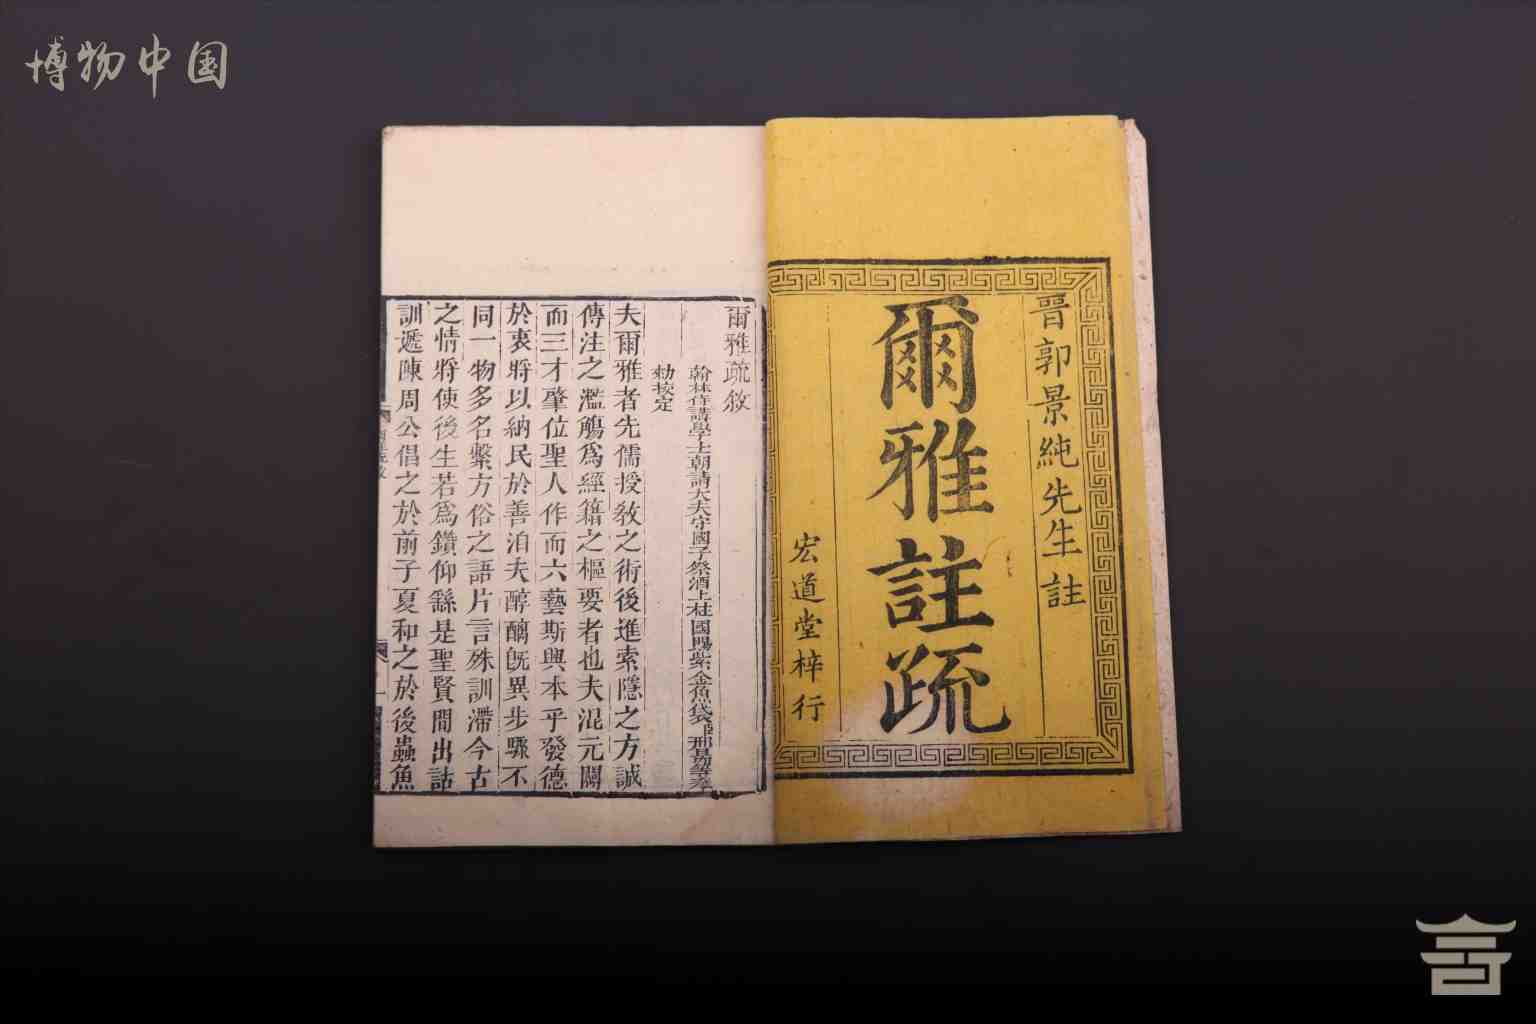 博物中国
晉郭景純先生註
爾雅註疏
宏道堂梓行
爾雅疏敘
翰林侍講學士朝請大夫守國子祭酒上柱國賜紫金魚袋臣邢昺等奉
勑校定
夫爾雅者先儒授敎之術後進索隱之方誠
傳注之濫觴爲經籍之樞要者也夫混元闢
而三才肇位聖人作而六藝斯興本乎發德
於衷將以納民於善洎夫醇醨旣異步驟不
同一物多名繫方俗之語片言殊訓滯今古
之情將使後生若爲鑽仰繇是聖賢間出詁
訓遞陳周公倡之於前子夏和之於後蟲魚